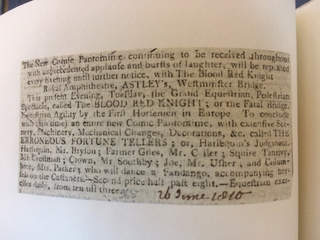 The New Comic Pantomime continuing to be received throughout
with unprecedented applause and bursts of laughter, will be repeated
every Evening until further notice, with The Blood Red Knight
Royal Amphitheatre, ASTLEY's, Westminster Bridge.
This present Evening, Tuesday, the Grand Equestrian, Pedestrian
Spectacle, called The BLOOD RED KNIGHT; or the Fatal Bridge.
Equestrian Agility by the First Horsemen in Europe. To conclude
with an entire new Comic Pantomime, with extensive Sce-
nery, Machinery, Mechanical Changes, Decorations, &c. called THE
ERRONEOUS FORTUNE TELLERS; or, Harlequin's Judgement.
Harlequin, Mr. Bryson; Farmer Gries, Mr. Squire Tanzey,
Mr. Crossman; Clown, Mr. Southby; Joe, Mr. Usher; and Colum-
bine, Mrs. Parker; who will dance a Fandango, accompanying her-
self on the Castanets.—Second price half past eight.—Equestrian exer-
cises daily, from ten till three.
26 June 1810